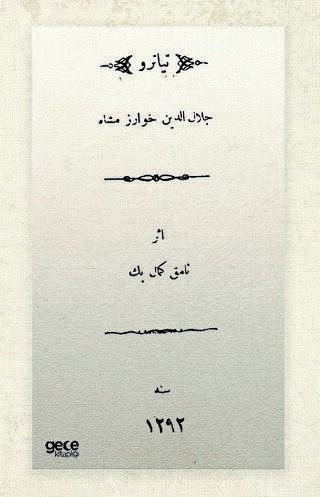 تياترو
جلال الدين خوارزمشاه
اثر
نامق كمال بك
سنه
١٢٩٢
gece
kitaplığı